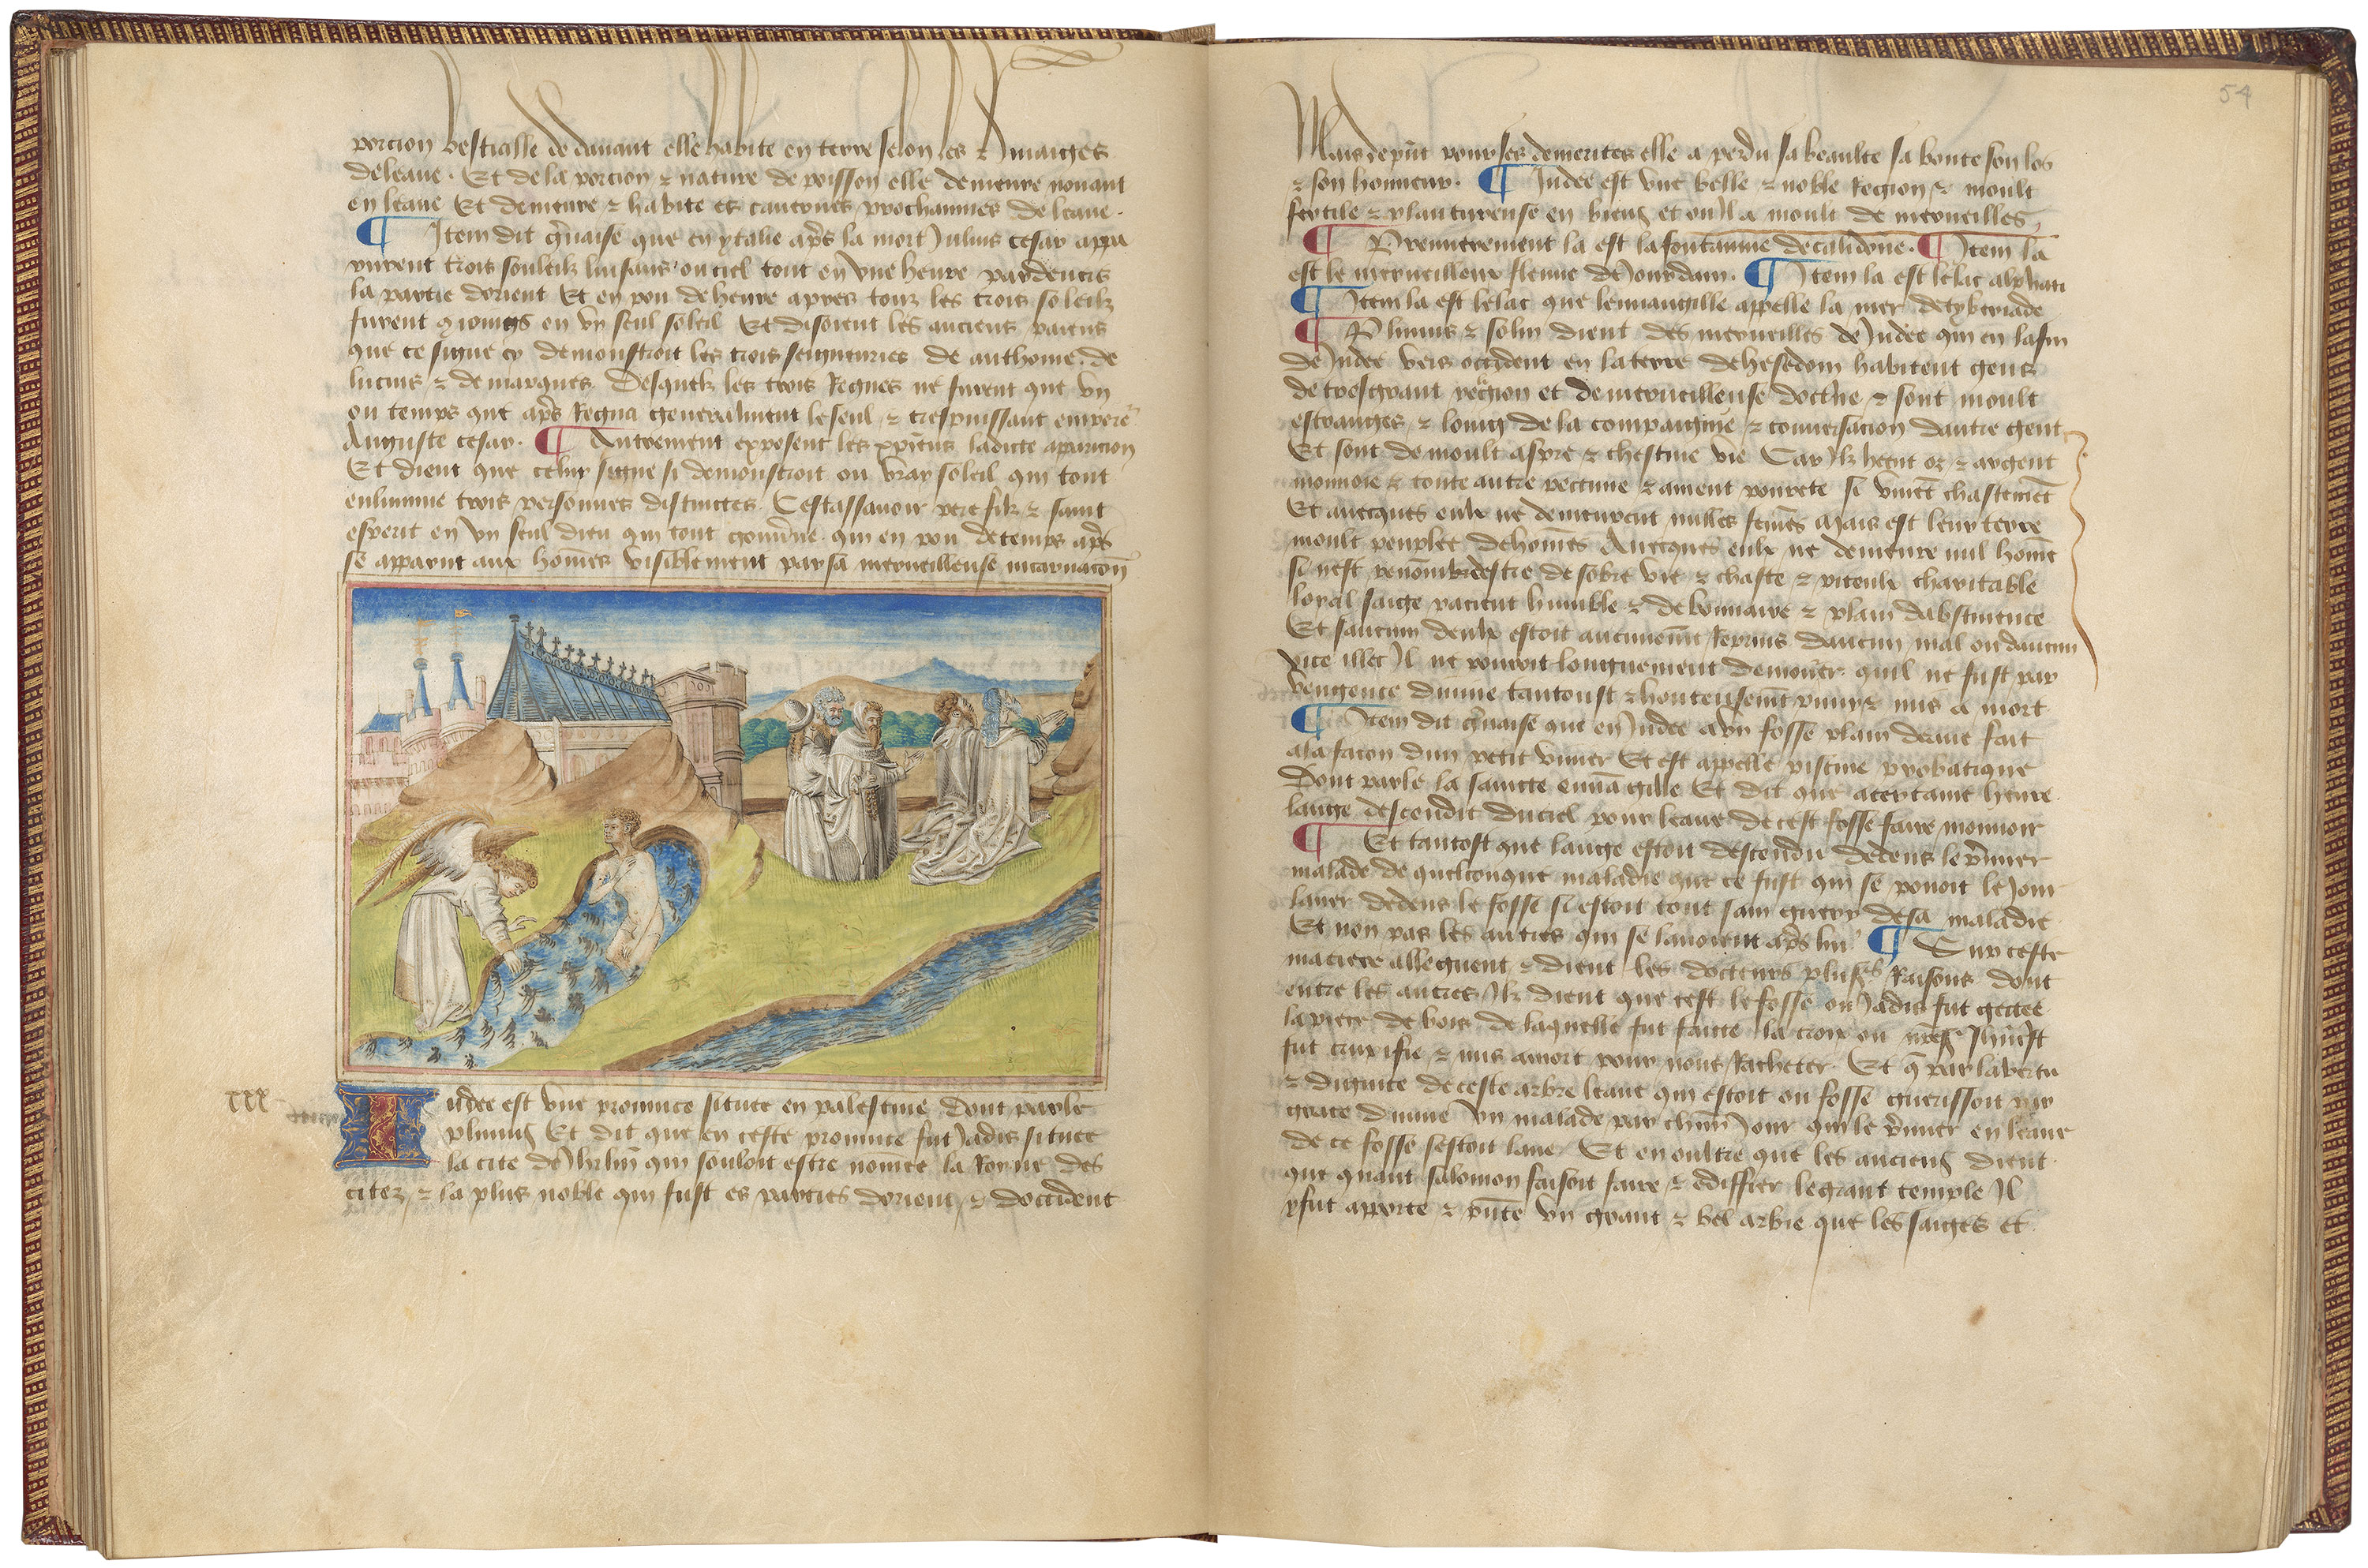 porcion bestialle de davant elle habite en terre selon les & Rivaiges
deleaue. Et de la porcion & nature de poisson elle demeure nouant
en leaue Et demeure & habite es cavernes prochainnes de leaue.
¶ Item dit gervaise que en ytalie aprs la mort Julius cesar appa
rurent trois souleilz luisans ou ciel tout en une heure pardevers
la partie dorient Et en pou de heure apres touz les trois soleilz
furent en un seul soleil Et disoient les anciens paiens
que ce signe cy demonstroit les trois seigneuries de anthoine. de
lucius & de marques. Desquelz les trois Regnes ne furent que un
ou temps que aprs Regna generalment le seul & trespuissant emperer
Auguste cesar. ¶ Autrement exposent les xpiens ladicte aparicion
Et dient que celui signe si demonstroit ou vray soleil qui tout
enlumine trois personnes distinctes Cestassavoir pere filz & saint
esperit en un seul dieu qui tout gouverne. qui en pou de temps aprs
se apparut aux homes visiblement par sa merveilleuse incarnacon
xxx
Iudee est une province situee en palestine dont parle
plinius Et dit que en ceste province fut Jadis situee
la cite de Jhrlm qui souloit estre nomee la Royne des
citez, & la plus noble qui fust es parties dorient & doccident
54
Mais depnt pour ses demerites elle a perdu sa beaulte sa bonte son los
& son honneur. ¶ Iudee est une belle & noble Region & moult
fertile & plantureuse en biens et ou Il a moult de merveilles,
¶ Premierement la est la fontainne de calidone. ¶ Item la
est le merveilleux fleuve de Jourdain. ¶ Item la est le lac alphati
¶ Item la est le lac que levvangille appelle la mer de tyberiade
¶ Plinius & solin dient des merveilles de Judee qui en la fin
de Judee vers occident en la terre de hesedom habitent gens
de tresgrant region et de merveilleuse doctrine & sont moult
estranges, & loing de la compaignie & conversacion dautre gent
Et sont de moult aspre & chestive vie Car Ilz heent or & argent
monnoie & toute autre pecune & ament povrete se vivent chastement
Et avecques eulx ne demeurent nulles femes Mais est leur terre
moult peuplee de homes Avecques eulx ne demeure nul home
si nest renomme destre de sobre vie & chaste & piteulx charitable
loyal saige pacient humble & debonnaire & plain dabstinence
Et saucun deulx estoit aucunemt Reprins daucun mal ou daucun
vice illec Il ne pourroit longuement demourer quil ne fust par
vengence divine tantoust & honteusemt puniz & mis a mort
¶ Item dit gervaise que en Judee a un fosse plain deaue fait
a la facon dun petit vivier Et est appelle piscine probatique
Dont parle la saincte euvangille Et dit que a certaine heure
lange descendit du ciel pour leaue de cest fosse faire mouvoir
¶ Et tantost que lange estoit descendu dedens le premier
malade de quelconque maladie que ce fust qui se povoit le Jour
laver dedens le fosse si estoit tout sain guery de sa maladie
Et non pas les autres qui se lavoient aprs lui ¶ Sur ceste
matiere alleguent & dient les docteurs plusrs Raisons dont
entre les autres Ilz dient que cest le fosse ou Jadis fut gectee
la piece de bois de laquelle fut faicte la croix ou nre sr Jhucrst
fut crucifie & mis a mort pour nous Racheter Et que par la vertu
& dignite de ceste arbre leaue qui estoit ou fosse guerissoit par
grace divine un malade par chun Jour qui le premier en leaue
de ce fosse sestoit lave. Et en oultre que les anciens dient
que quant salomon faisoit faire & ediffier le grant temple Il
y fut apporte & pnte un grant & bel arbre que les saiges et